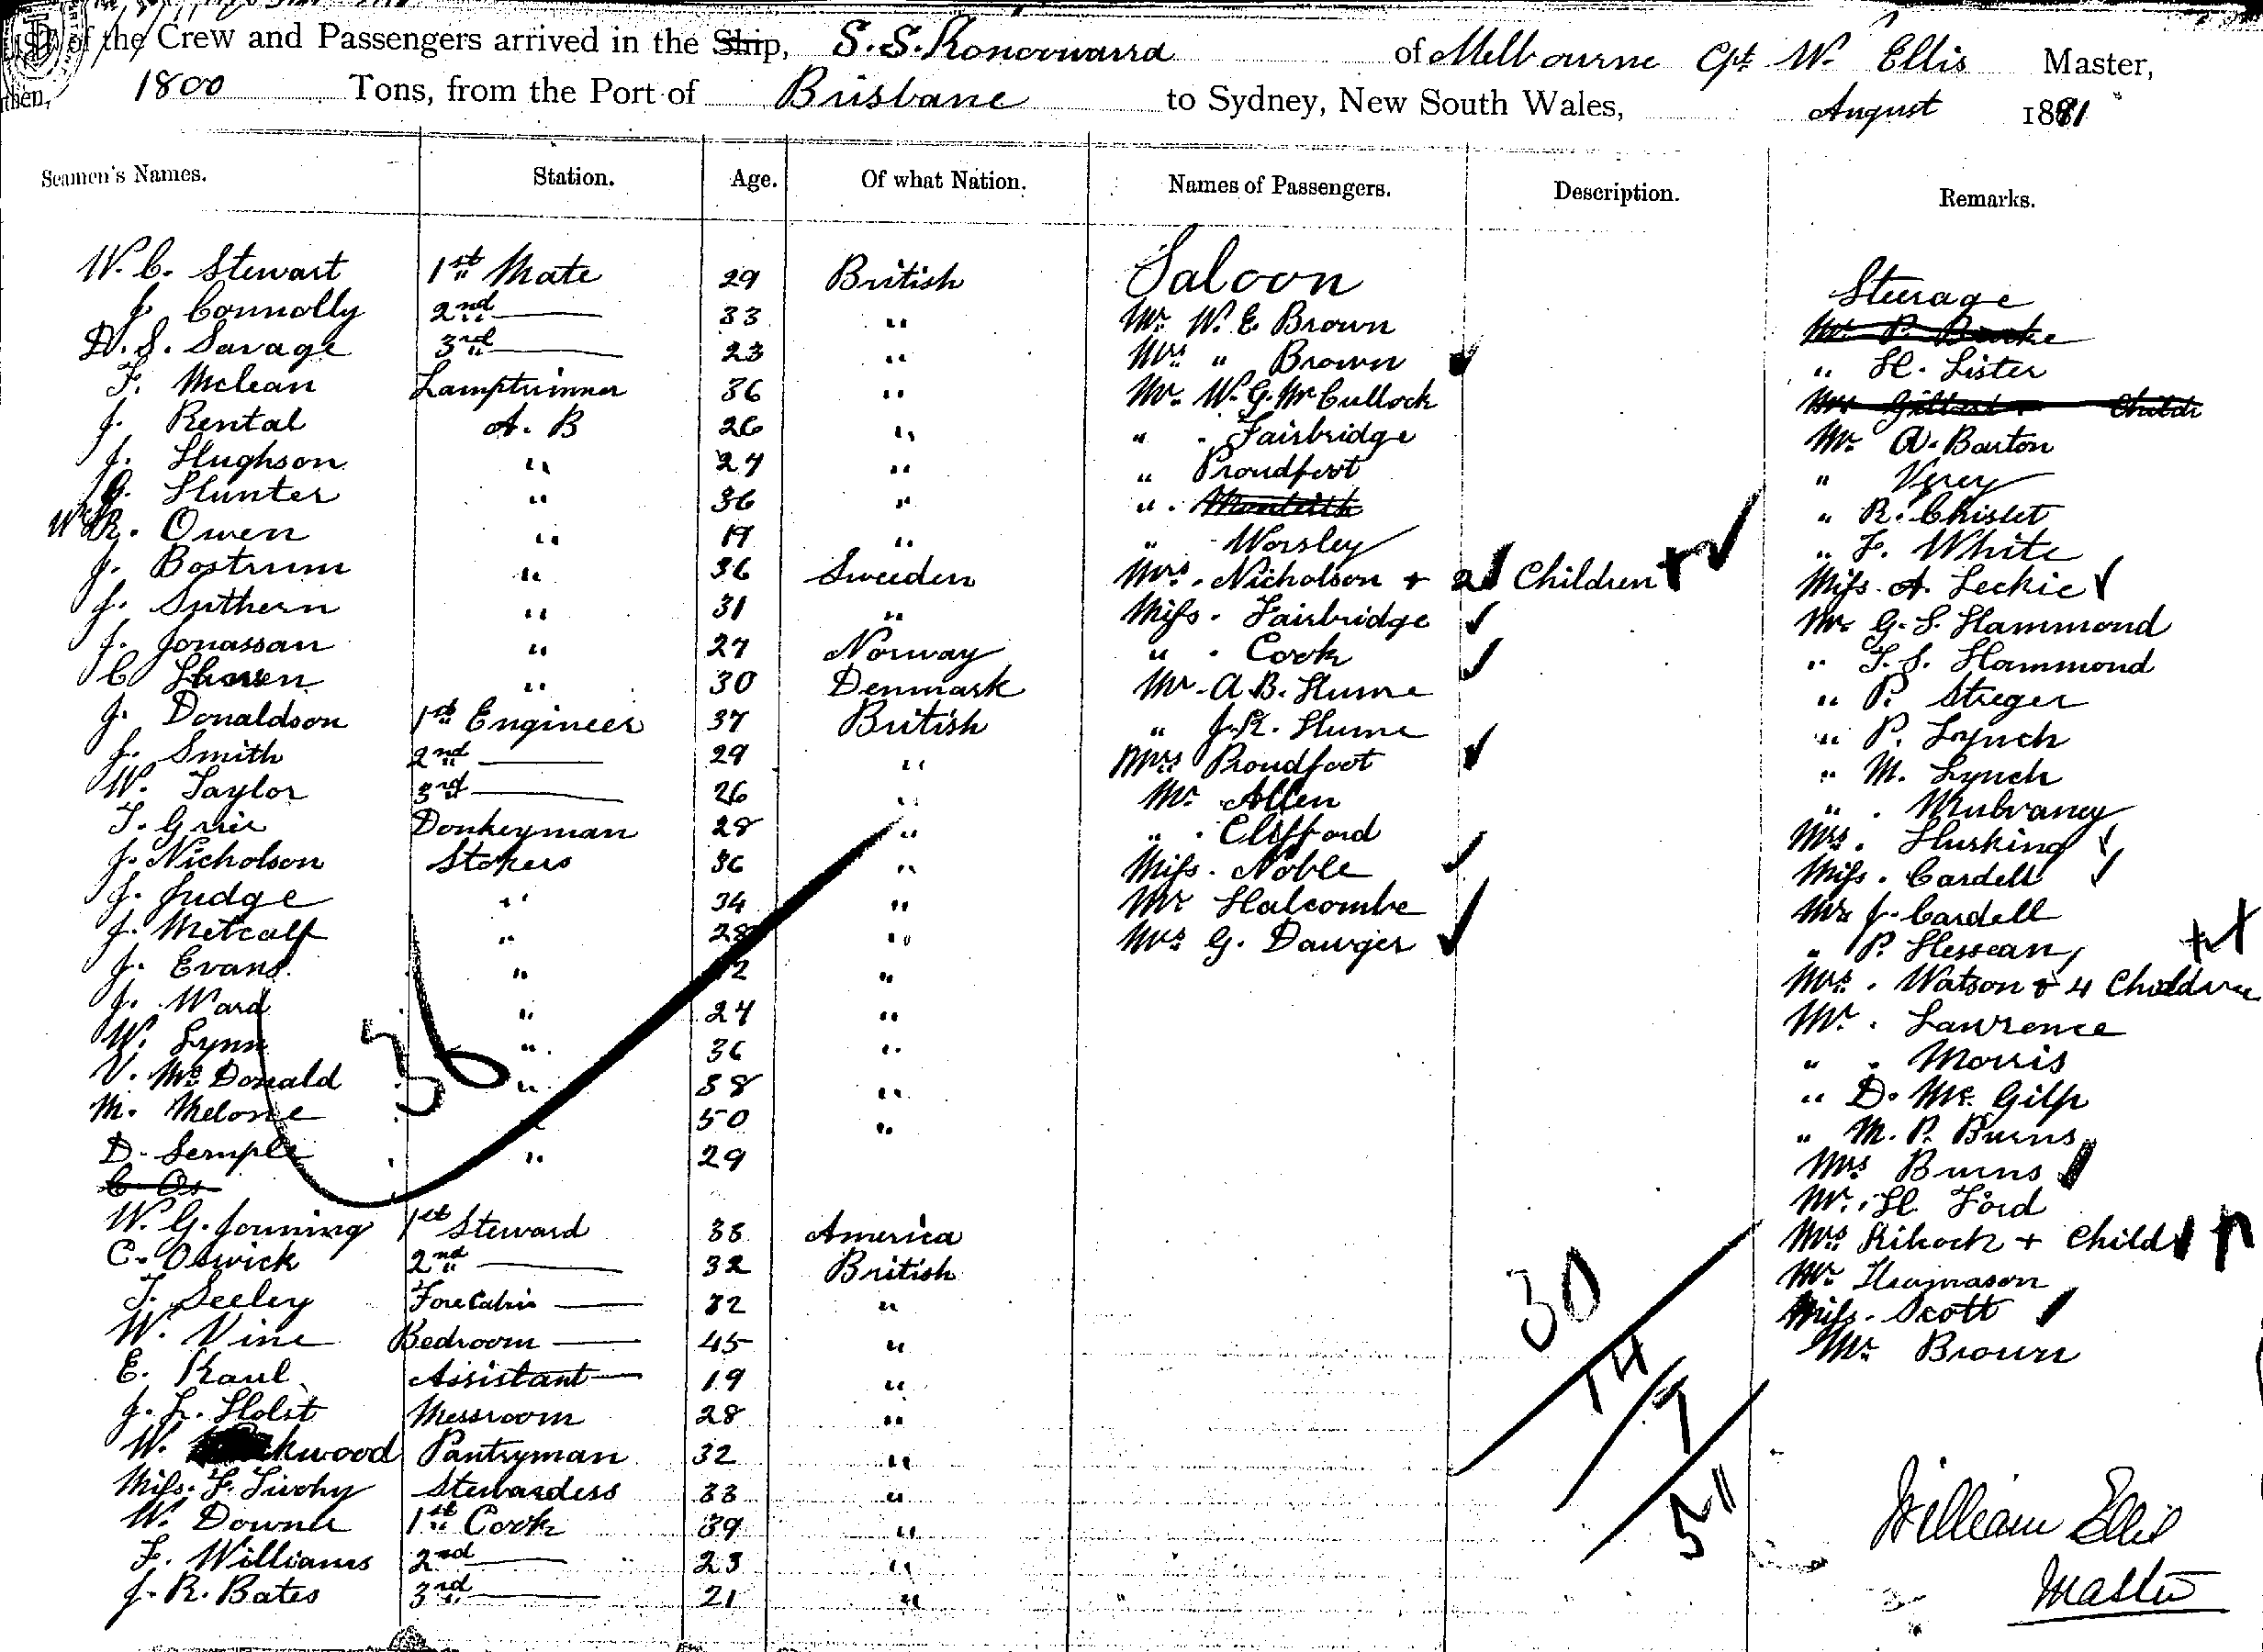 of the Crew and Passengers arrived in the Ship, S.S. Konoowarra of Melbourne Cpt W. Ellis Master,
then, 1800 Tons, from the Port of Brisbane to Sydney, New South Wales, August 1881
Seamen's Names. Station. Age. Of what Nation. Names of Passengers. Description. Remarks.
W. C. Stewart 1st Mate 29 British
J. Connolly 2nd 33 "
D. S. Savage 3rd 23 "
F. Mclean Lamptrimmer 36 "
J. Rental A. B 26 "
J. Hughson " 27 "
G. Hunter " 36 "
R. Owen " 19 "
J. Bostrum " 36 Sweden
J. Suthern " 31 "
J. Jonassan " 27 Norway
C 30 Denmark
J. Donaldson 1st Engineer 37 British
J. Smith 2nd 29 "
W. Taylor 3rd 26 "
T. Grier Donkeyman 28 "
J. Nicholson Stokers 36 "
J. Judge " 34 "
J. Metcalf " 28 "
J. Evans " "
J. Ward " 24 "
W. Lynn " 36 "
V. McDonald " 38 "
M. Melone " 50 "
D. Semple " 29
36
W. G. Jonning 1st Steward 38 America
C. Oswick 2nd 32 British
T. Seeley Fore Cabin 32 "
W. Vine Bedroom 45 "
E. Kaul Assistant 19 "
J. L. Holst Messroom 28 "
W. kwood Pantryman 32 "
Miss. F. Stewardess 33 "
W. Downer 1st Cook 39 "
F. Williams 2nd 23 "
J. R. Bates 3rd 21 "
Saloon
Mr. W. E. Brown
Mrs " Brown
Mr. W. G. McCullock
" Fairbridge
" Proudfoot
" Monteith
" Worsley
Mrs. Nicholson + 2 Children
Miss. Fairbridge
" Cook
Mr. A. B. Hume
" J. R. Hume
Mrs Proudfoot
Mr. Allen
" Clifford
Miss. Noble
Mr Halcombe
Mrs G. Dawger
Steerage
Mr. P. Burke
" H. Lister
Mrs Gilbert + Child
Mr. A. Barton
" Verey
" R. Chislet
" F. White
Miss. A. Leckie
Mr. G. S. Hammond
" T. S. Hammond
" P. Streger
" P. Lynch
" M. Lynch
" Mulvaney
Mrs. Husking
Miss. Cardell
Mr J. Cardell
" P. Hessean
Mrs. Watson + 4 Children
Mr. Lawrence
" Morris
" D. McGilp
" M. P. Burns
Mrs Burns
Mr. H. Ford
Mrs + Child
Mr Thomason
Miss. Scott
Mr Brown
30
14
7
51
William Ellis
Master